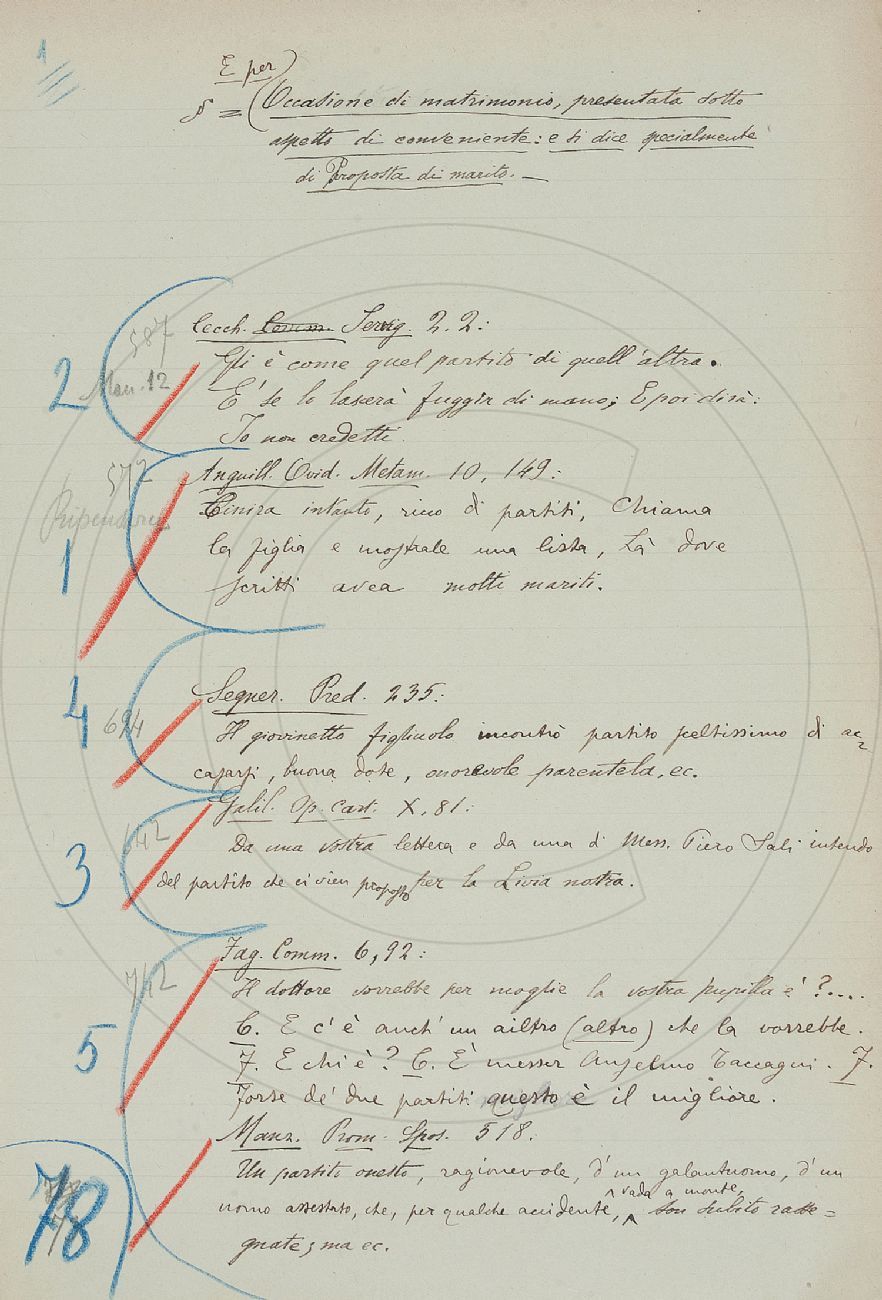 1
E per
§ = (Occasione di matrimonio, presentata sotto
aspetto di conveniente: e si dice specialmente
di Proposta di marito. —
Cecch. Comm. Servig. 2. 2:
587
2
Man. 12
Gli è come quel partito di quell'altra.
E' se lo lascerà fuggir di mano; E poi dirà:
Io non credetti.
572
Anguill. Ovid. Metam. 10, 149:
Cinira intanto, ricco di partiti, Chiama
1
la figlia e mostrale una lista, Là dove
scritti avea molti mariti.
4
694
Segner. Pred. 235:
Il giovinetto figliuolo incontrò partito sceltissimo di ac=
casarsi, buona dote, onorevole parentela, ec.
642
Galil. Op. Cast. X, 81:
3
Da una vostra lettera e da una di Mess. Piero Sali intendo
del partito che ci vien proposto per la Livia nostra.
Fag. Comm. 6, 92:
742
Il dottore vorrebbe per moglie la vostra pupilla è?....
5
C. E c'è anch'un ailtro (altro) che la vorrebbe.
F. E chi è? C. È messer Anselmo Taccagni. F.
Forse de' due partiti questo è il migliore.
Manz. Prom. Spos. 518:
78
Un partito onesto, ragionevole, d'un galantuomo, d'un
vada a monte,
uomo assestato, che, per qualche accidente, son subito rasse=
gnate; ma ec.